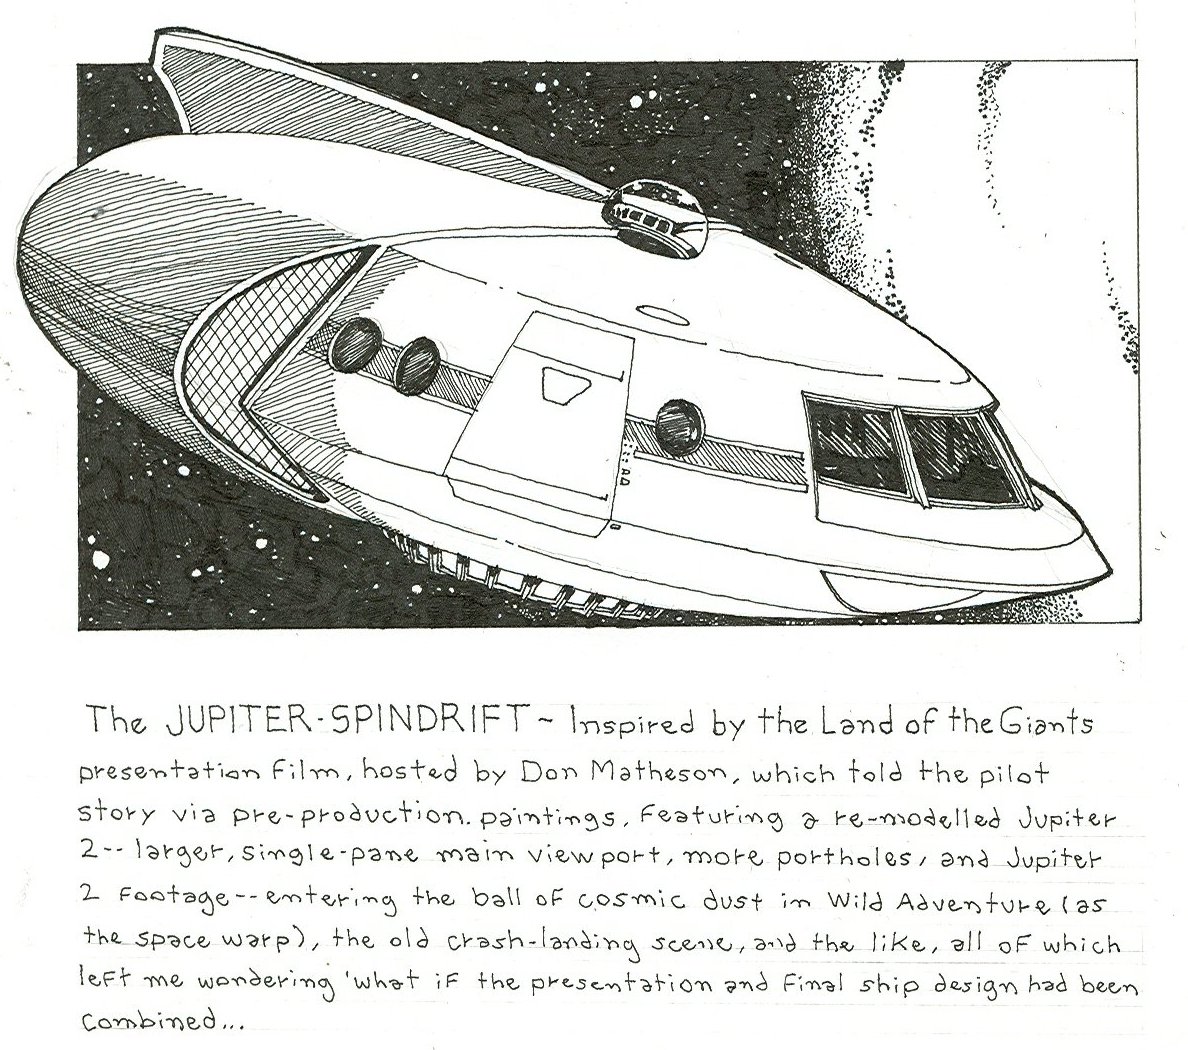 The JUPITER-SPINDRIFT ~ Inspired by the Land of the Giants
presentation film, hosted by Don Matheson, which told the pilot
story via pre-production. paintings, featuring a re-modelled Jupiter
2-- larger, single-pane main viewport, more portholes, and Jupiter
2 footage--entering the ball of cosmic dust in Wild Adventure (as
the space warp), the old crash-landing scene, and the like, all of which
left me wondering 'what if the presentation and final ship design had been
combined...